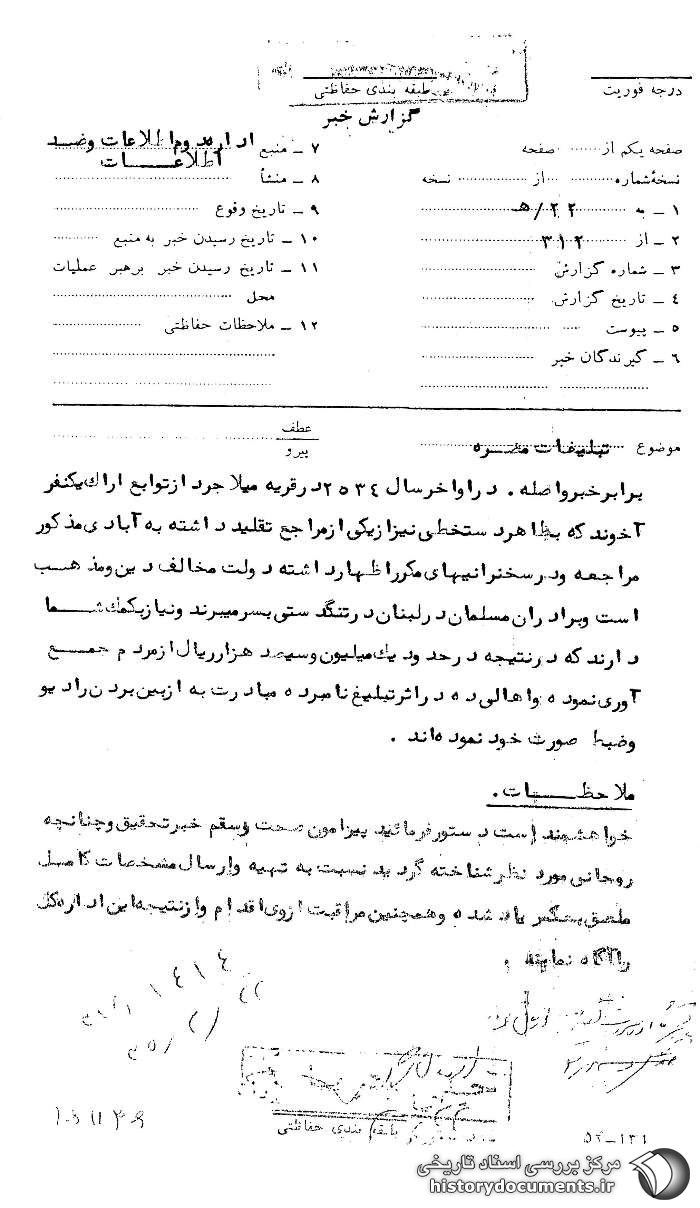 طبقه بندی حفاظتی
درجه فوریت
گزارش خبر
صفحه یکم از ........ صفحه
نسخهٔ شماره ........ از ........ نسخه
۱ ــ به ۲۲ /هـ
۲ ــ از ۳۱۲
۳ ــ شماره گزارش
۴ ــ تاریخ گزارش
۵ ــ پیوست
۶ ــ گیرندگان خبر
۷ ــ منبع اداره دوم اطلاعات وضد
اطلاعـــات
۸ ــ منشأ
۹ ــ تاریخ وقوع
۱۰ ــ تاریخ رسیدن خبر به منبع
۱۱ ــ تاریخ رسیدن خبر برهبر عملیات
محل
۱۲ ــ ملاحظات حفاظتی
موضوع تبلیغات مضره
عطف
پیرو
برابر خبر واصله . در اواخر سال ۲۵۳٤ در قریه میلاجرد از توابع اراك یکنفر
آخوند که بظاهر دستخطی نیز از یکی از مراجع تقلید داشته به آبادی مذکور
مراجعه ودر سخنرانیهای مکرر اظهار داشته دولت مخالف دین ومذهـب
است وبرادران مسلمان در لبنان در تنگدستی بسر میبرند ونیاز بکمك شـما
دارند که در نتیجه در حدود یك میلیون وسیصد هزار ریال از مردم جمـع
آوری نموده واهالی ده در اثر تبلیغ نامبرده مبادرت به از بین بردن رادیو
وضبط صوت خود نموده‌اند .
ملاحظـــات .
خواهشمند است دستور فرمائید پیرامون صحت وسقم خبر تحقیق وچنانچه
روحانی مورد نظر شناخته گردید نسبت به تهیه وارسال مشخصات کامـل
ملصق بعکس یاد شده وهمچنین مراقبت ازوی اقدام واز نتیجه این اداره کل
را آگاه نمایند .
۱٤۱٤
طبقه بندی حفاظتی
۱۰۵۱۱۳۶
۵۲-۱۳۱
مرکز بررسی اسناد تاریخی
historydocuments.ir